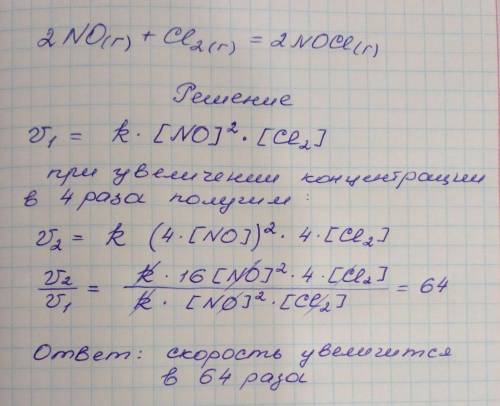 2NO(г) + Cl₂(г) = 2NOCl(г)
Решение
v₁ = k · [NO]² · [Cl₂]
при увеличении концентрации
в 4 раза получим:
v₂ = k (4·[NO])² · 4·[Cl₂]
v₂/v₁ = k · 16 [NO]² · 4 · [Cl₂] / k · [NO]² · [Cl₂] = 64
Ответ: скорость увеличится
в 64 раза